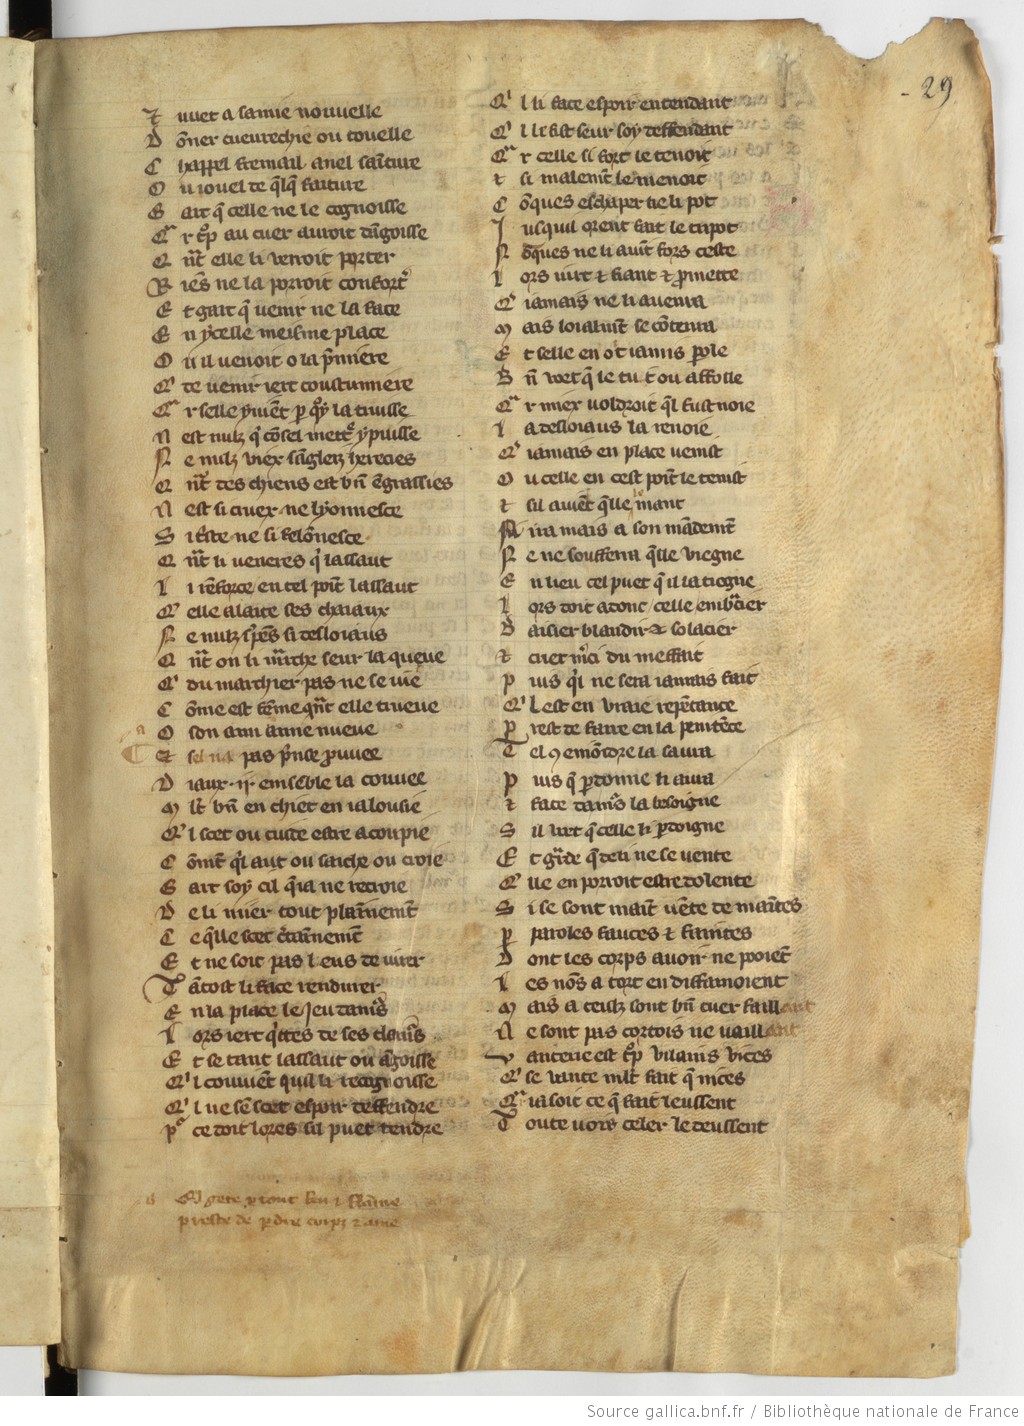 29
I uuet a samie nouuelle
D ōner cueurechie ou touelle
C happel fremail anel saīture
O u iouel de q̄lq̄ faiture
G art q̄ celle ne le cognoisse
C ar tr̄op au cuer auroit dāgoisse
Q nt̄ elle li venroit porter
R iēs ne la porroit confort̄
E t gart q̄ uenir ne la face
E n ycelle meisme place
O u il uenoit o la p̄miere
Q de uenir iert coustumiere
C ar selle ymēt p quoy la truisse
N est nulz q̄ cōsel mett̄ ypuisse
N e nulz viex sāgler hericies
Q nt̄ des chiens est bn̄ ēgrassies
N est si cruex ne lyonnesce
S i triste ne si felōnesce
Q nt̄ li veneres q̄ lassaut
L i rēforce en tel poīt lassaut
Q elle alaite ses chaiaux
N e nulz sp̄ēs si desloiaus
Q nt̄ on li marche seur la queue
Q du marchier pas ne se uie
C ōme est fēme qnt̄ elle trueue
O son ami amie nueue
et sel na pas p̄nse p̄uuee
D iaux .ii. ensēble la couuee
M lt̄ bn̄ en chiet en ialousie
Q il scet ou cuide estre acoupie
C ōmēt q̄l aut ou saiche ou croie
G art soy cil q̄ ia ne recroie
D e li nuier tout plainemēt
C e q̄lle scet c̄tainnemēt
E t ne soit pas lens de iurer
T ātost li face rendurer
E n la place le jeu damrs
L ors iert q̄ttes de ses clamrs
E t se tant lassaut ou āgoisse
Q il couuiēt quil li recognoisse
Q il ne sē scet espoir deffendre
P ce doit lores sil puet tendre
Q il li face espoir entendant
Q il le fist seur soy deffendant
C ar celle si fort le tenoit
et si malemēt le menoit
C ōques eschaper ne li pot
J usquil orent fait le tripot
N ōques ne li auīt fors ceste
L ors iurt et fiant et p̄mette
Q iamais ne li auenra
M ais loialmēt se cōtenra
E t selle en ot iamis pole
B n̄ voet q̄ le tut ou affolle
C ar miex uoldroit q̄l fust noie
L a desloiaus la renoie
Q iamais en place uenist
O u celle en cest poīt le tenist
et sil auiēt q̄lle mant
N ira mais a son mādemēt
N e ne souffrera q̄lle viegne
E n lieu cel puet q̄ il la tiegne
L ors doit adonc celle embr̄cier
B aisier blandir et solacier
et crier m̄ci du meffait
P uis q̄l ne sera iamais fait
Q il est en vraie repētance
P rest de faire en la penitēce
T el 9 emōdre la saura
P uis q̄ pdonne li aura
et face damrs la besoigne
S il uet q̄ celle li pdoigne
E t garde q̄ deli ne se vente
Q lle en porroit estre dolente
S i se sont maīt uēte de maītes
p paroles fauces et faintes
D ont les corps auoir ne pooiēt
L es nōs a tort en diffamoient
M ais a ceulz sont bn̄ cuer faillant
N e sont pas cortois ne vaillant
V anterie est tr̄op vilains vices
Q se vante mlt̄ fait q̄ nices
C ar ia soit ce q̄ fait leussent
T oute uois celer le deussent
Source gallica.bnf.fr / Bibliothèque nationale de France